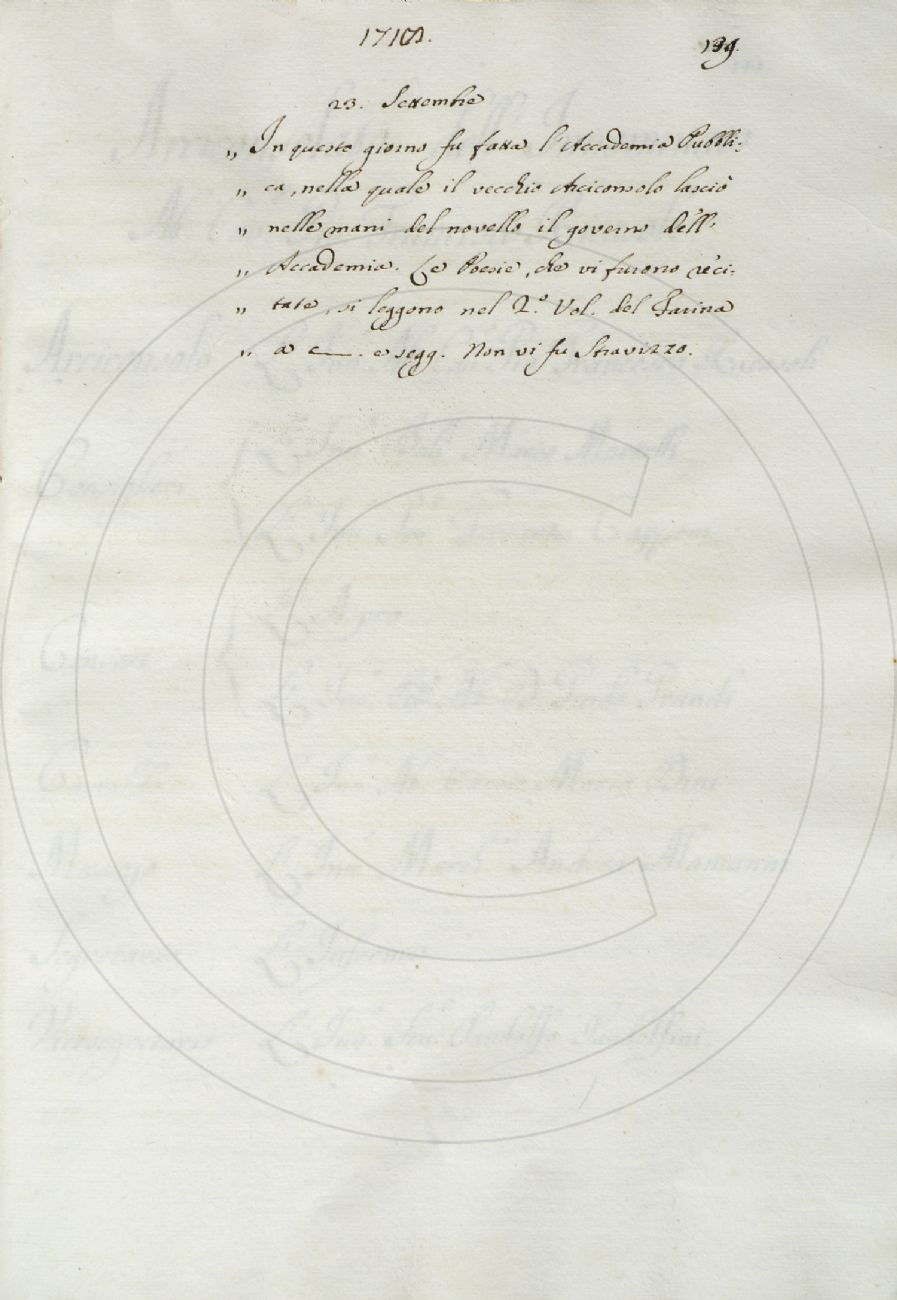 139.
23. Settembre
„ In questo giorno fu fatta l'Accademia Pubbli-
„ ca, nella quale il vecchio Arciconsolo lasciò
„ nelle mani del novello il governo dell'
„ Accademia. Le Poesie, che vi furono reci-
„ tate, si leggono nel 2.º Vol. del Farina
„ a c___. e segg. Non vi fu Stravizzo.